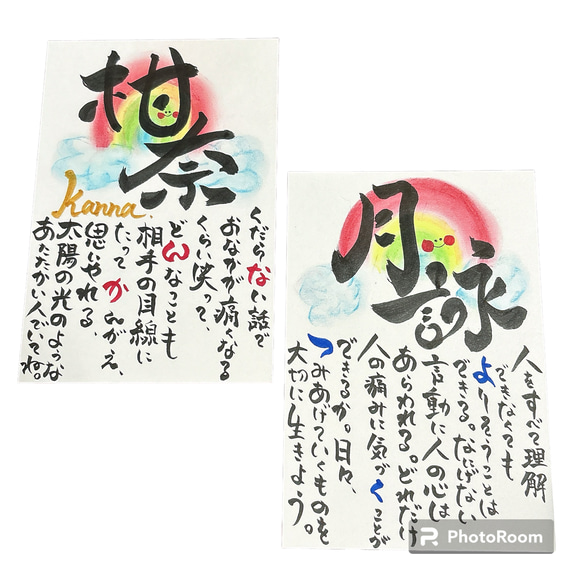 柑奈
Kanna.
くだらない話で
おなかが痛くなる
くらい笑って、
どんなことも
相手の目線に
たって かんがえ、
思いやれる、
太陽の光のような
あたたかい人でいてね。
月詠
人をすべて理解
できなくても
よりそうことは
できる。なにげない
言動に人の心は
あらわれる。どれだけ
人の痛みに気づくことが
できるか。日々、
つみあげていくものを
大切に生きよう。
PhotoRoom